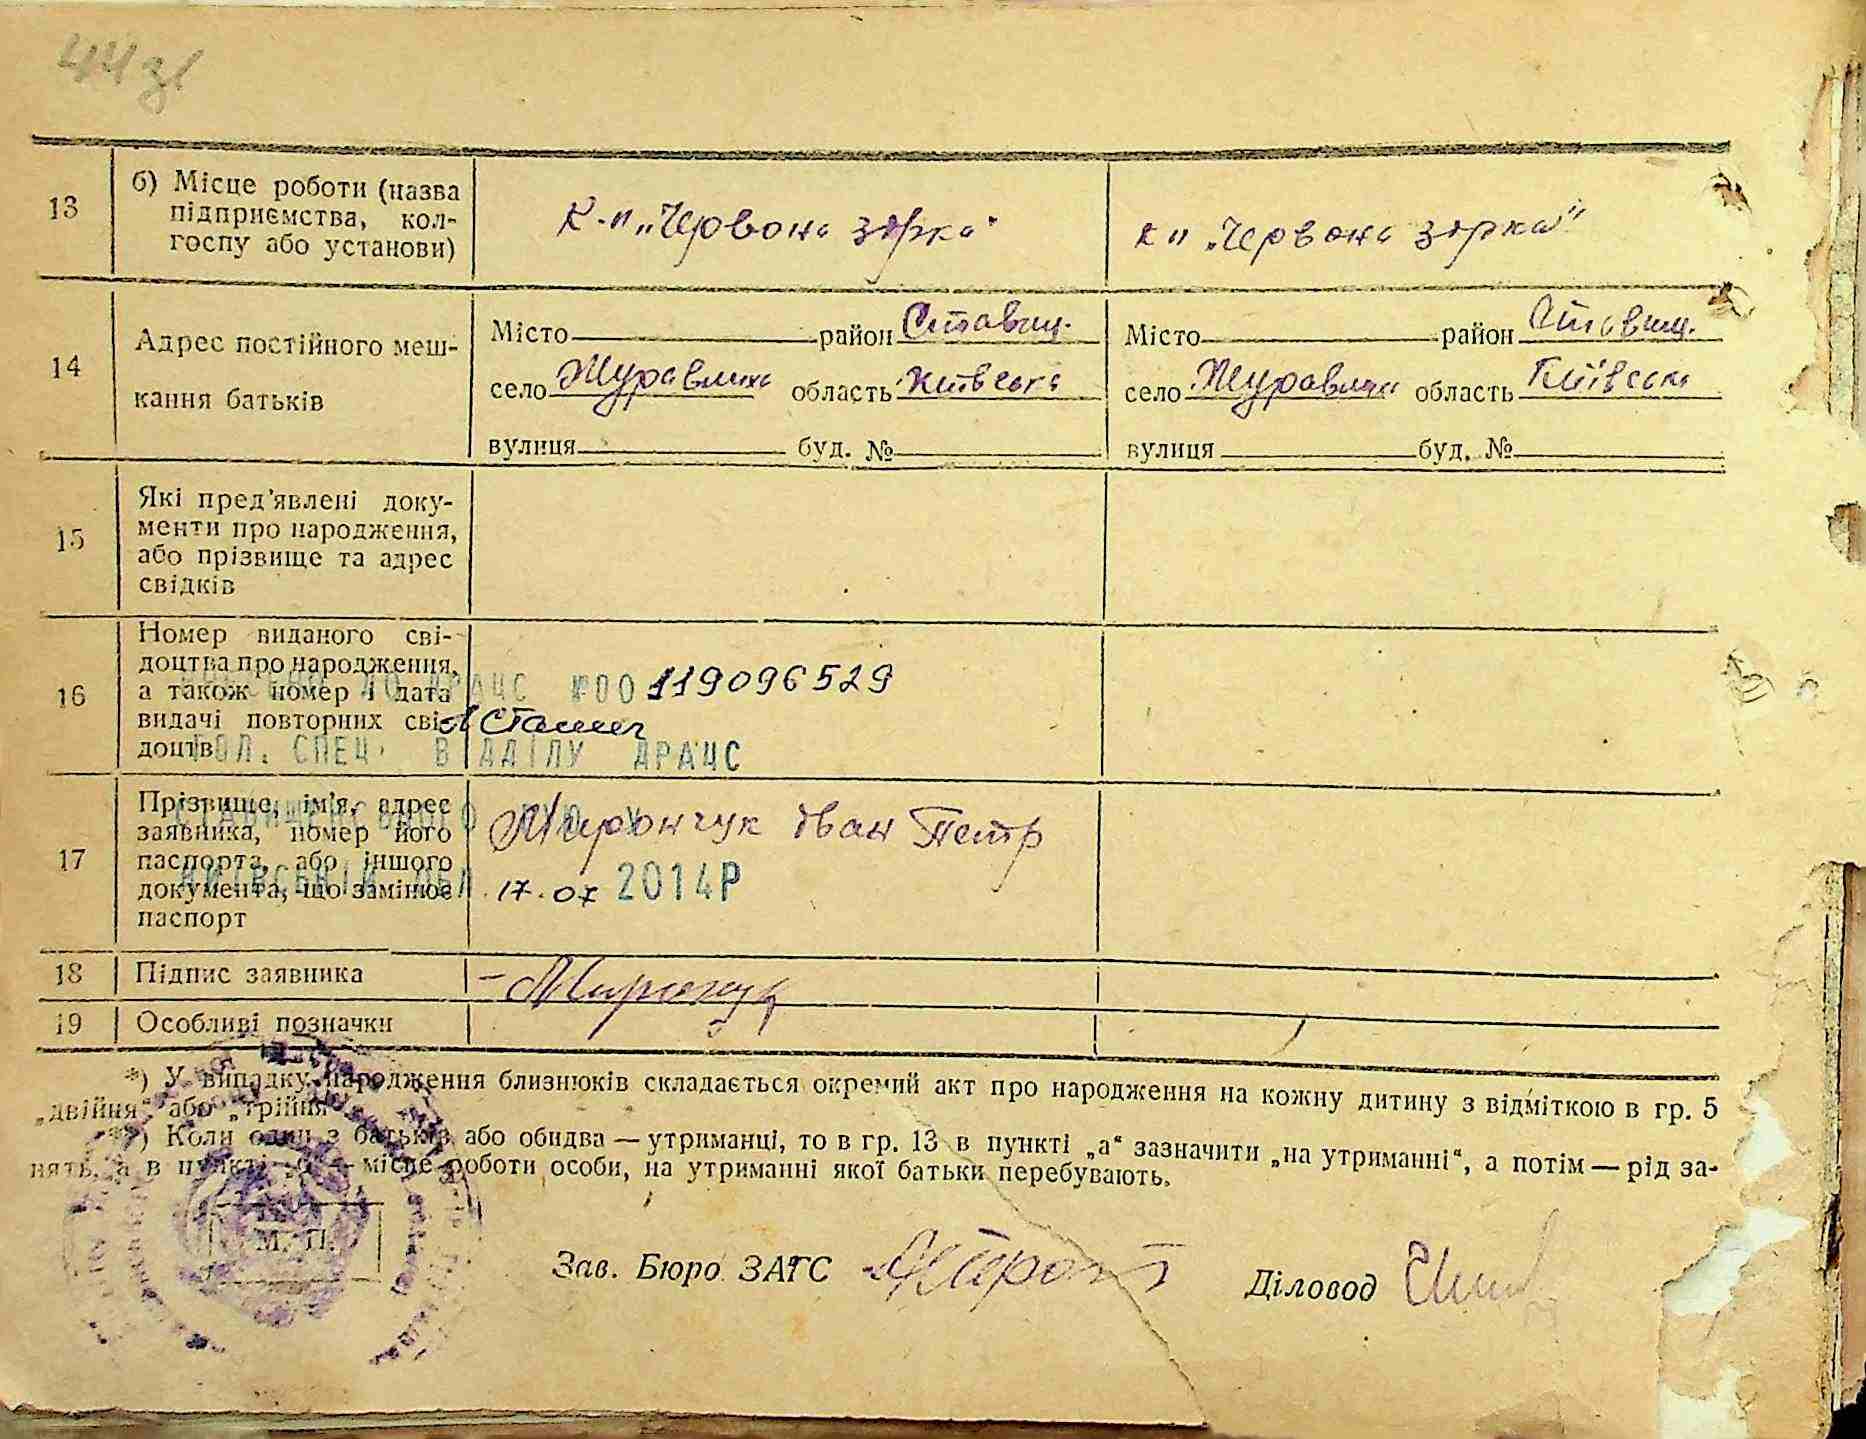 44 зі
13 б) Місце роботи (назва підприємства, кол-госпу або установи) к-п „Червона зірка" к п „Червона зірка"
14 Адрес постійного меш-кання батьків
Місто район Ставищ. Місто район Ставищ.
село Журавлиха область Київська село Журавлиха область Київська
вулиця буд. № вулиця буд. №
15 Які пред'явлені доку-
менти про народження,
або прізвище та адрес
свідків
16 Номер виданого сві-
доцтва про народження,
а також номер і дата
видачі повторних сві-
доцтв
ДО ДРАЦС №00119096529
ГОЛ. СПЕЦ. ВІДДІЛУ ДРАЦС
17 Прізвище, ім'я, адрес
заявника, номер його
паспорта, або іншого
документа, що замінює
паспорт
Мирончук Іван Петр
17.07 2014Р
18 Підпис заявника - Мирончук
19 Особливі позначки
*) У випадку народження близнюків складається окремий акт про народження на кожну дитину з відміткою в гр. 5
„двійня" або „трійня".
**) Коли один з батьків або обидва — утриманці, то в гр. 13 в пункті „а" зазначити „на утриманні", а потім — рід за-
нять, а в пункті „б" — місце роботи особи, на утриманні якої батьки перебувають.
М. П.
Зав. Бюро ЗАГС Діловод